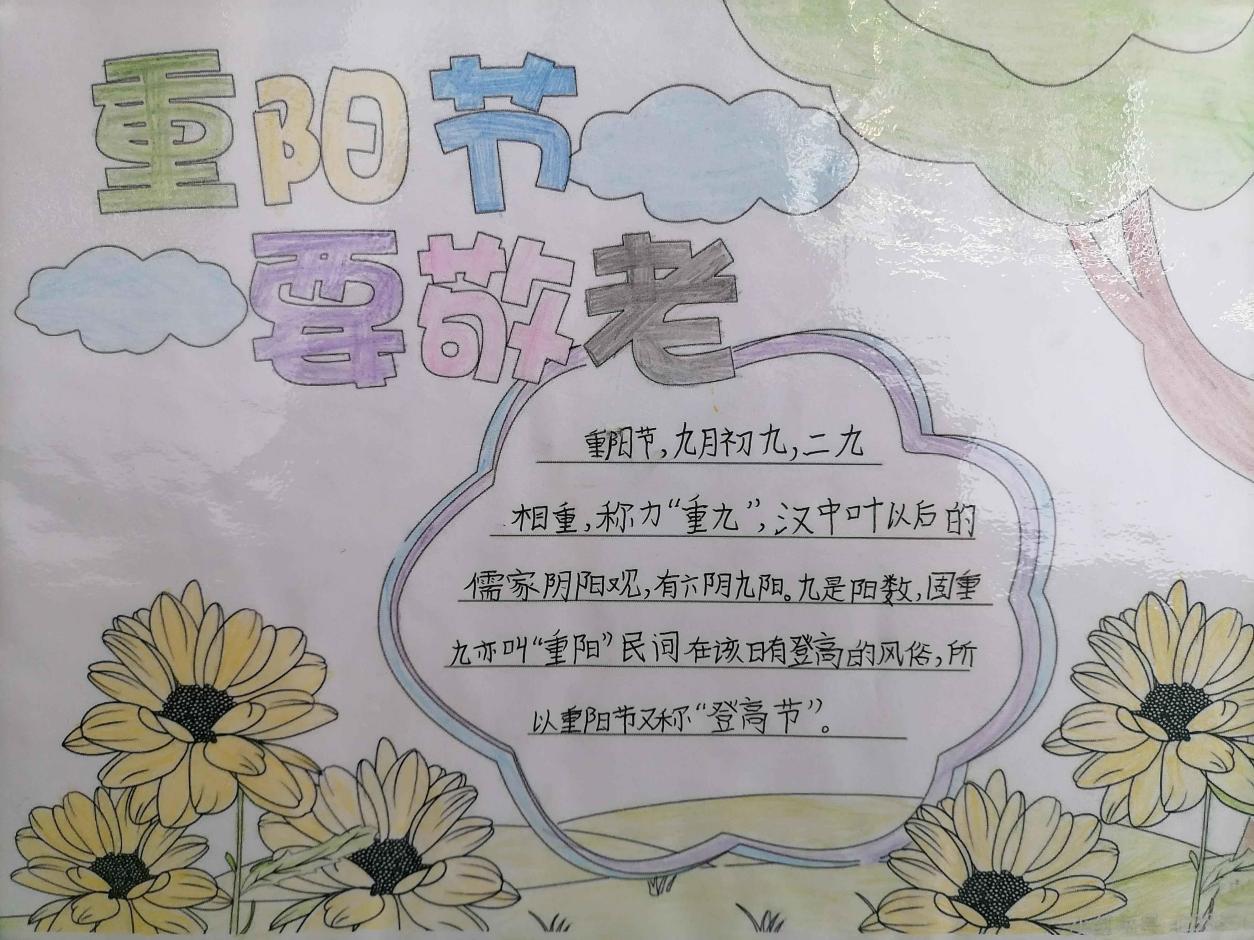 重阳节
尊敬老
重阳节,九月初九,二九
相重,称力“重九”,汉中叶以后的
儒家阴阳观,有六阴九阳。九是阳数,固重
九亦叫“重阳”民间在该日有登高的风俗,所
以重阳节又称“登高节”。